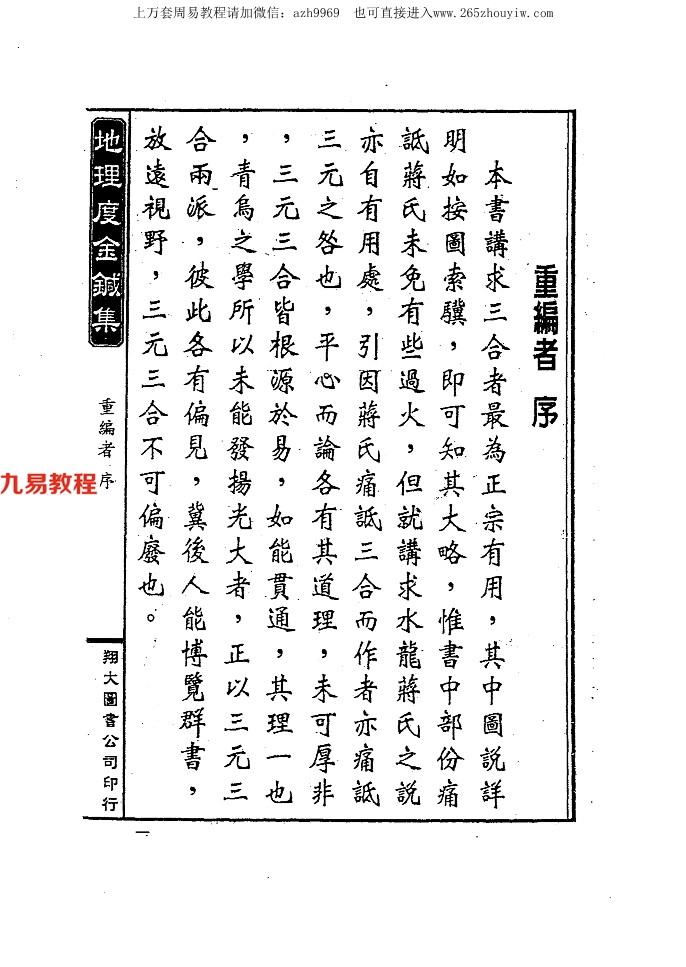 上万套周易教程请加微信：azh9969 也可直接进入www.265zhouyiw.com
重編者 序
本書講求三合者最為正宗有用，其中圖說詳
明如按圖索驥，即可知其大略，惟書中部份痛
詆蔣氏未免有些過火，但就講求水龍蔣氏之說
亦自有用處，引因蔣氏痛詆三合而作者亦痛詆
三元之咎也，平心而論各有其道理，未可厚非
，三元三合皆根源於易，如能貫通，其理一也
，青烏之學所以未能發揚光大者，正以三元三
合兩派，彼此各有偏見，冀後人能博覽群書，
放遠視野，三元三合不可偏廢也。
地理度金鍼集
重編者 序
九易教程
翔大圖書公司印行
一